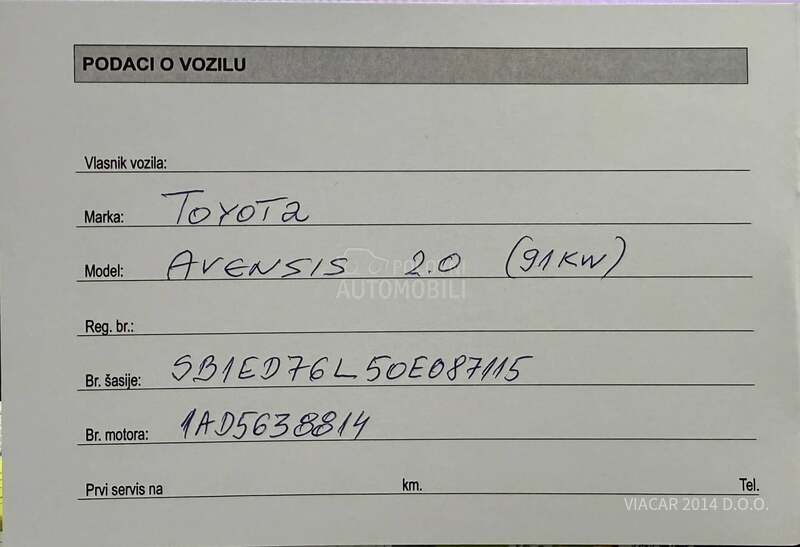 PODACI O VOZILU
Vlasnik vozila:
Marka: TOYOTA
Model: AVENSIS 2.0 (91KW)
POLOVNI
AUTOMOBILI
Reg. br.:
Br. šasije: SB1ED76L50E087115
Br. motora: 1AD5638814
Prvi servis na km. Tel.
VIACAR 2014 D.O.O.